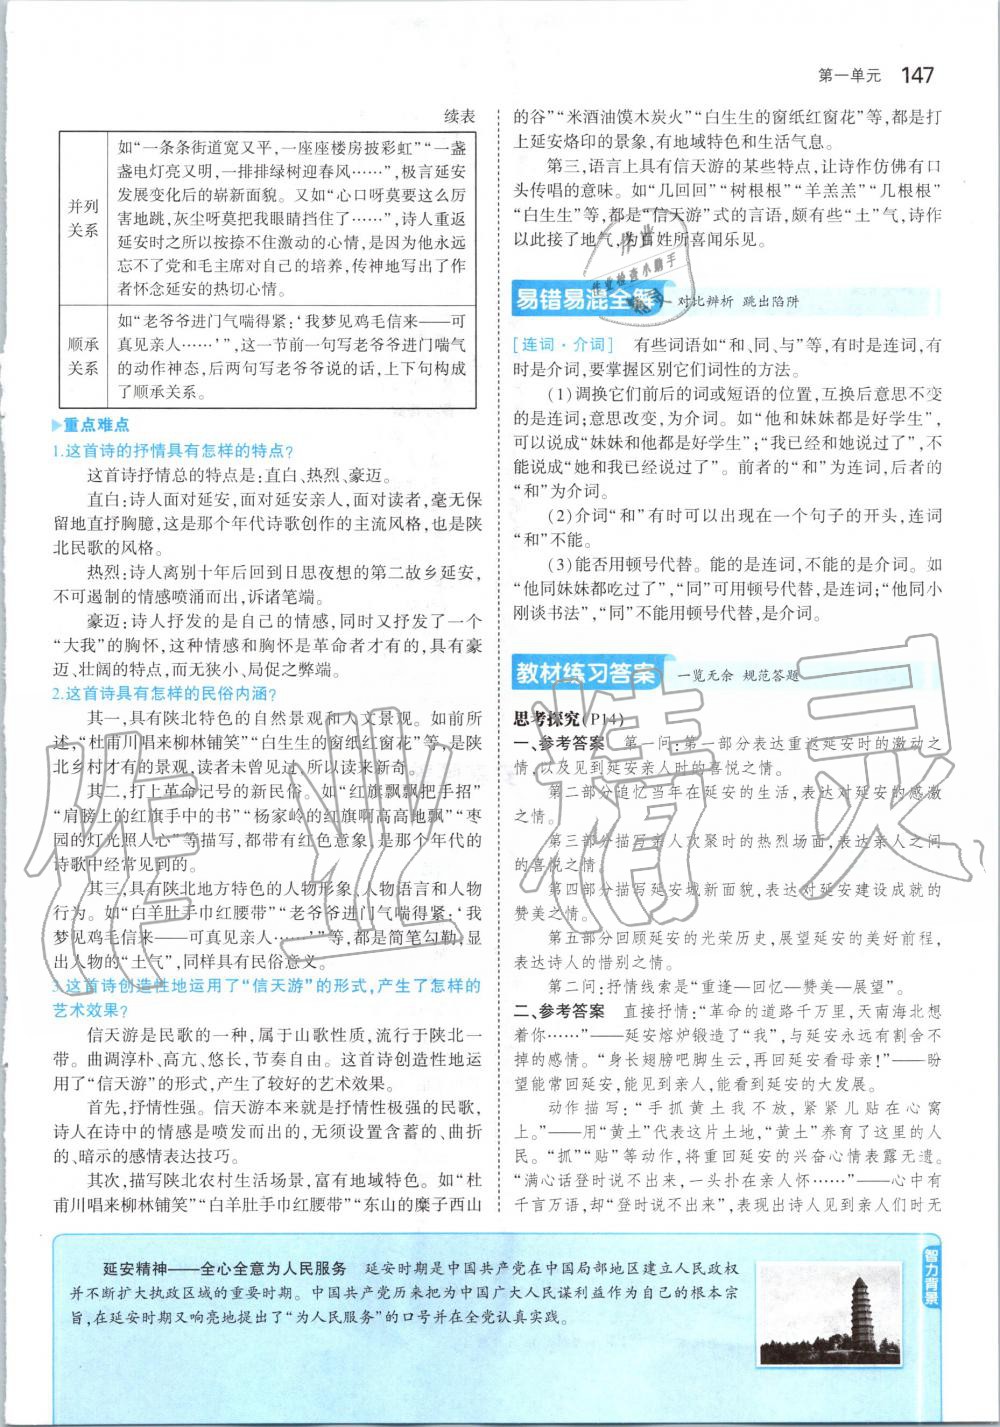 第一单元 147
续表
并列
关系
如“一条条街道宽又平，一座座楼房披彩虹”“一盏
盏电灯亮又明，一排排绿树迎春风……”，极言延安
发展变化后的崭新面貌。又如“心口呀莫要这么厉
害地跳，灰尘呀莫把我眼睛挡住了……”，诗人重返
延安时之所以按捺不住激动的心情，是因为他永远
忘不了党和毛主席对自己的培养，传神地写出了作
者怀念延安的热切心情。
顺承
关系
如“老爷爷进门气喘得紧：‘我梦见鸡毛信来——可
真见亲人……’”，这一节前一句写老爷爷进门喘气
的动作神态，后两句写老爷爷说的话，上下句构成
了顺承关系。
重点难点
1.这首诗的抒情具有怎样的特点？
这首诗抒情总的特点是：直白、热烈、豪迈。
直白：诗人面对延安，面对延安亲人，面对读者，毫无保
留地直抒胸臆，这是那个年代诗歌创作的主流风格，也是陕
北民歌的风格。
热烈：诗人离别十年后回到日思夜想的第二故乡延安，
不可遏制的情感喷涌而出，诉诸笔端。
豪迈：诗人抒发的是自己的情感，同时又抒发了一个
“大我”的胸怀，这种情感和胸怀是革命者才有的，具有豪
迈、壮阔的特点，而无狭小、局促之弊端。
2.这首诗具有怎样的民俗内涵？
其一，具有陕北特色的自然景观和人文景观。如前所
述，“杜甫川唱来柳林铺笑”“白生生的窗纸红窗花”等，是陕
北乡村才有的景观，读者未曾见过，所以读来新奇。
其二，打上革命记号的新民俗。如“红旗飘飘把手招”
“肩膀上的红旗手中的书”“杨家岭的红旗啊高高地飘”“枣
园的灯光照人心”等描写，都带有红色意象，是那个年代的
诗歌中经常见到的。
其三，具有陕北地方特色的人物形象、人物语言和人物
行为。如“白羊肚手巾红腰带”“老爷爷进门气喘得紧：‘我
梦见鸡毛信来——可真见亲人……’”等，都是简笔勾勒，显
出人物的“土气”，同样具有民俗意义。
3.这首诗创造性地运用了“信天游”的形式，产生了怎样的
艺术效果？
信天游是民歌的一种，属于山歌性质，流行于陕北一
带。曲调淳朴、高亢、悠长，节奏自由。这首诗创造性地运
用了“信天游”的形式，产生了较好的艺术效果。
首先，抒情性强。信天游本来就是抒情性极强的民歌，
诗人在诗中的情感是喷发而出的，无须设置含蓄的、曲折
的、暗示的感情表达技巧。
其次，描写陕北农村生活场景，富有地域特色。如“杜
甫川唱来柳林铺笑”“白羊肚手巾红腰带”“东山的糜子西山
的谷”“米酒油馍木炭火”“白生生的窗纸红窗花”等，都是打
上延安烙印的景象，有地域特色和生活气息。
第三，语言上具有信天游的某些特点，让诗作仿佛有口
头传唱的意味。如“几回回”“树根根”“羊羔羔”“几根根”
“白生生”等，都是“信天游”式的言语，颇有些“土”气，诗作
以此接了地气，为百姓所喜闻乐见。
易错易混全解 对比辨析 跳出陷阱
[连词·介词] 有些词语如“和、同、与”等，有时是连词，有
时是介词，要掌握区别它们词性的方法。
（1）调换它们前后的词或短语的位置，互换后意思不变
的是连词；意思改变，为介词。如“他和妹妹都是好学生”，
可以说成“妹妹和他都是好学生”；“我已经和她说过了”，不
能说成“她和我已经说过了”。前者的“和”为连词，后者的
“和”为介词。
（2）介词“和”有时可以出现在一个句子的开头，连词
“和”不能。
（3）能否用顿号代替。能的是连词，不能的是介词。如
“他同妹妹都吃过了”，“同”可用顿号代替，是连词；“他同小
刚谈书法”，“同”不能用顿号代替，是介词。
教材练习答案 一览无余 规范答题
思考探究（P14）
一、参考答案 第一问：第一部分表达重返延安时的激动之
情，以及见到延安亲人时的喜悦之情。
第二部分追忆当年在延安的生活，表达对延安的感激
之情。
第三部分描写亲人欢聚时的热烈场面，表达亲人之间
的喜悦之情。
第四部分描写延安城新面貌，表达对延安建设成就的
赞美之情。
第五部分回顾延安的光荣历史，展望延安的美好前程，
表达诗人的惜别之情。
第二问：抒情线索是“重逢—回忆—赞美—展望”。
二、参考答案 直接抒情：“革命的道路千万里，天南海北想
着你……”——延安熔炉锻造了“我”，与延安永远有割舍不
掉的感情。“身长翅膀吧脚生云，再回延安看母亲！”——盼
望能常回延安，能见到亲人，能看到延安的大发展。
动作描写：“手抓黄土我不放，紧紧儿贴在心窝
上。”——用“黄土”代表这片土地，“黄土”养育了这里的人
民。“抓”“贴”等动作，将重回延安的兴奋心情表露无遗。
“满心话登时说不出来，一头扑在亲人怀……”——心中有
千言万语，却“登时说不出来”，表现出诗人见到亲人们时无
延安精神——全心全意为人民服务 延安时期是中国共产党在中国局部地区建立人民政权
并不断扩大执政区域的重要时期。中国共产党历来把为中国广大人民谋利益作为自己的根本宗
旨，在延安时期又响亮地提出了“为人民服务”的口号并在全党认真实践。
智力背景
作业精灵
作业
作业检查小助手
精灵